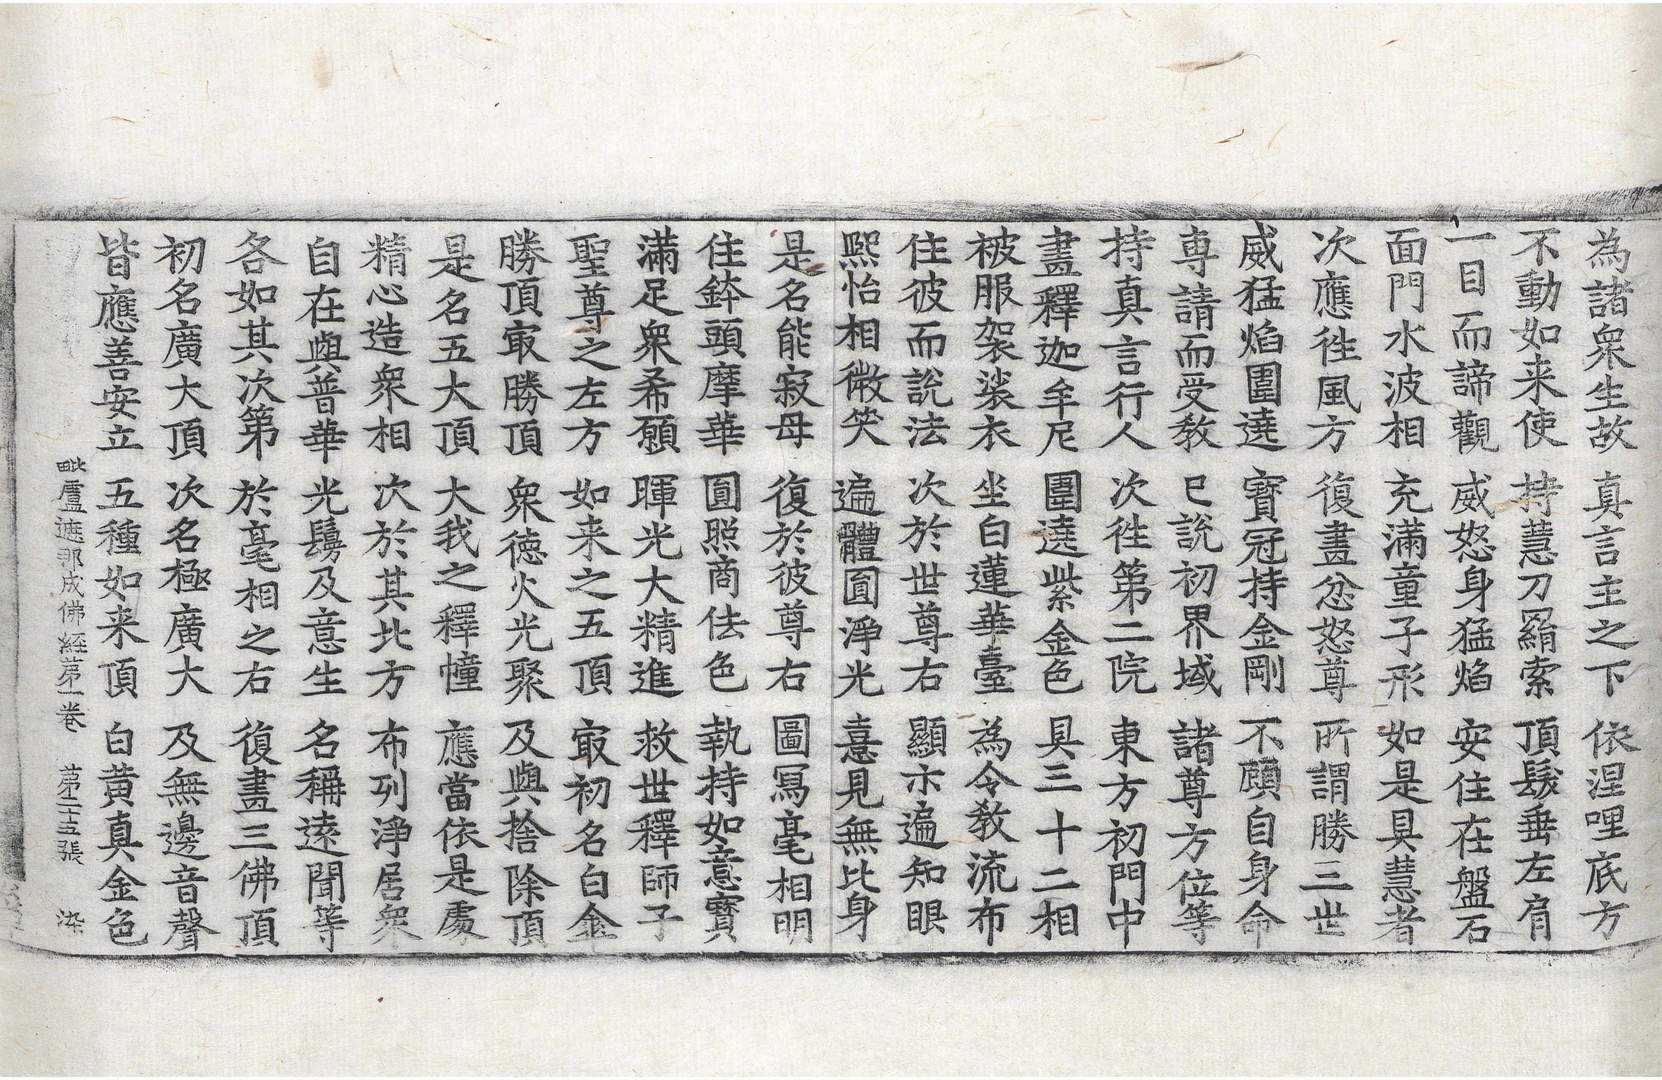 為諸衆生故 真言主之下 依涅哩底方
不動如来使 持慧刀羂索 頂髮垂左肩
一目而諦觀 威怒身猛焰 安住在盤石
面門水波相 充滿童子形 如是具慧者
次應徃風方 復畫忿怒尊 所謂勝三世
威猛焰圍遶 寶冠持金剛 不顧自身命
專請而受教 已說初界域 諸尊方位等
持真言行人 次徃第二院 東方初門中
畫釋迦牟尼 圍遶紫金色 具三十二相
被服袈裟衣 坐白蓮華臺 為令教流布
住彼而說法 次於世尊右 顯示遍知眼
熈怡相微笑 遍體圎淨光 憙見無比身
是名能寂母 復於彼尊右 圖寫毫相明
住鉢頭摩華 圓照商佉色 執持如意寶
滿足衆希願 暉光大精進 救世釋師子
聖尊之左方 如来之五頂 㝡初名白傘
勝頂㝡勝頂 衆徳火光聚 及與捨除頂
是名五大頂 大我之釋幢 應當依是處
精心造衆相 次於其北方 布列淨居衆
自在與普華 光鬘及意生 名稱逺聞等
各如其次第 於毫相之右 復畫三佛頂
初名廣大頂 次名極廣大 及無邊音聲
皆應善安立 五種如来頂 白黄真金色
毗盧遮那成佛經第一卷 第二十五張 染